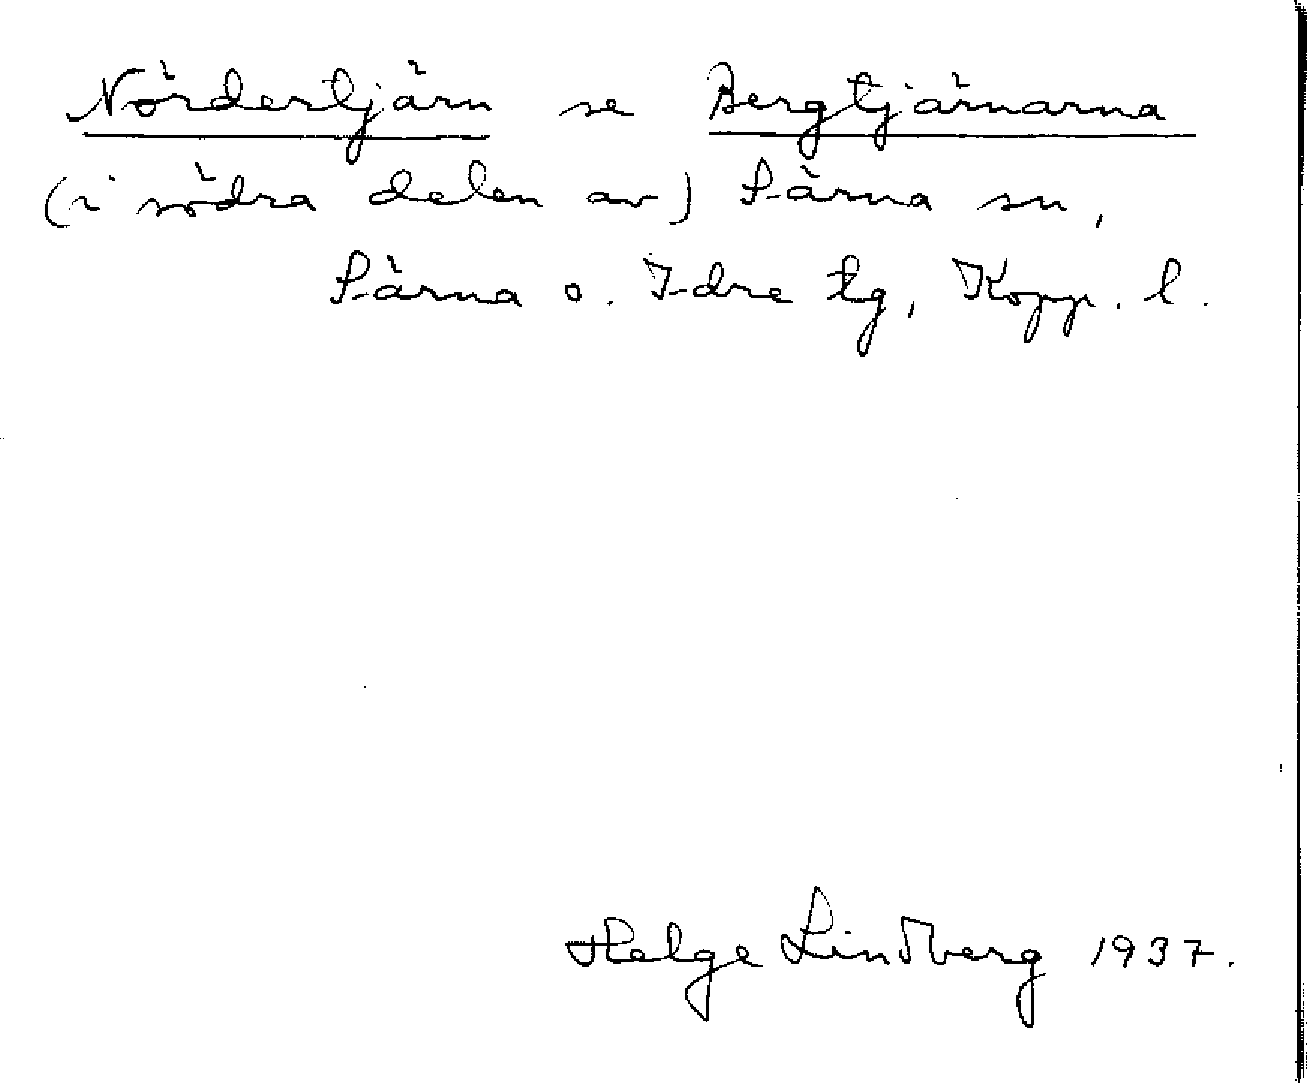 Nördertjärn se Bergtjärnarna
(i södra delen av) Särna sn,
Särna o. Idre tg, Kopp. l.
Helge Lindberg 1937.